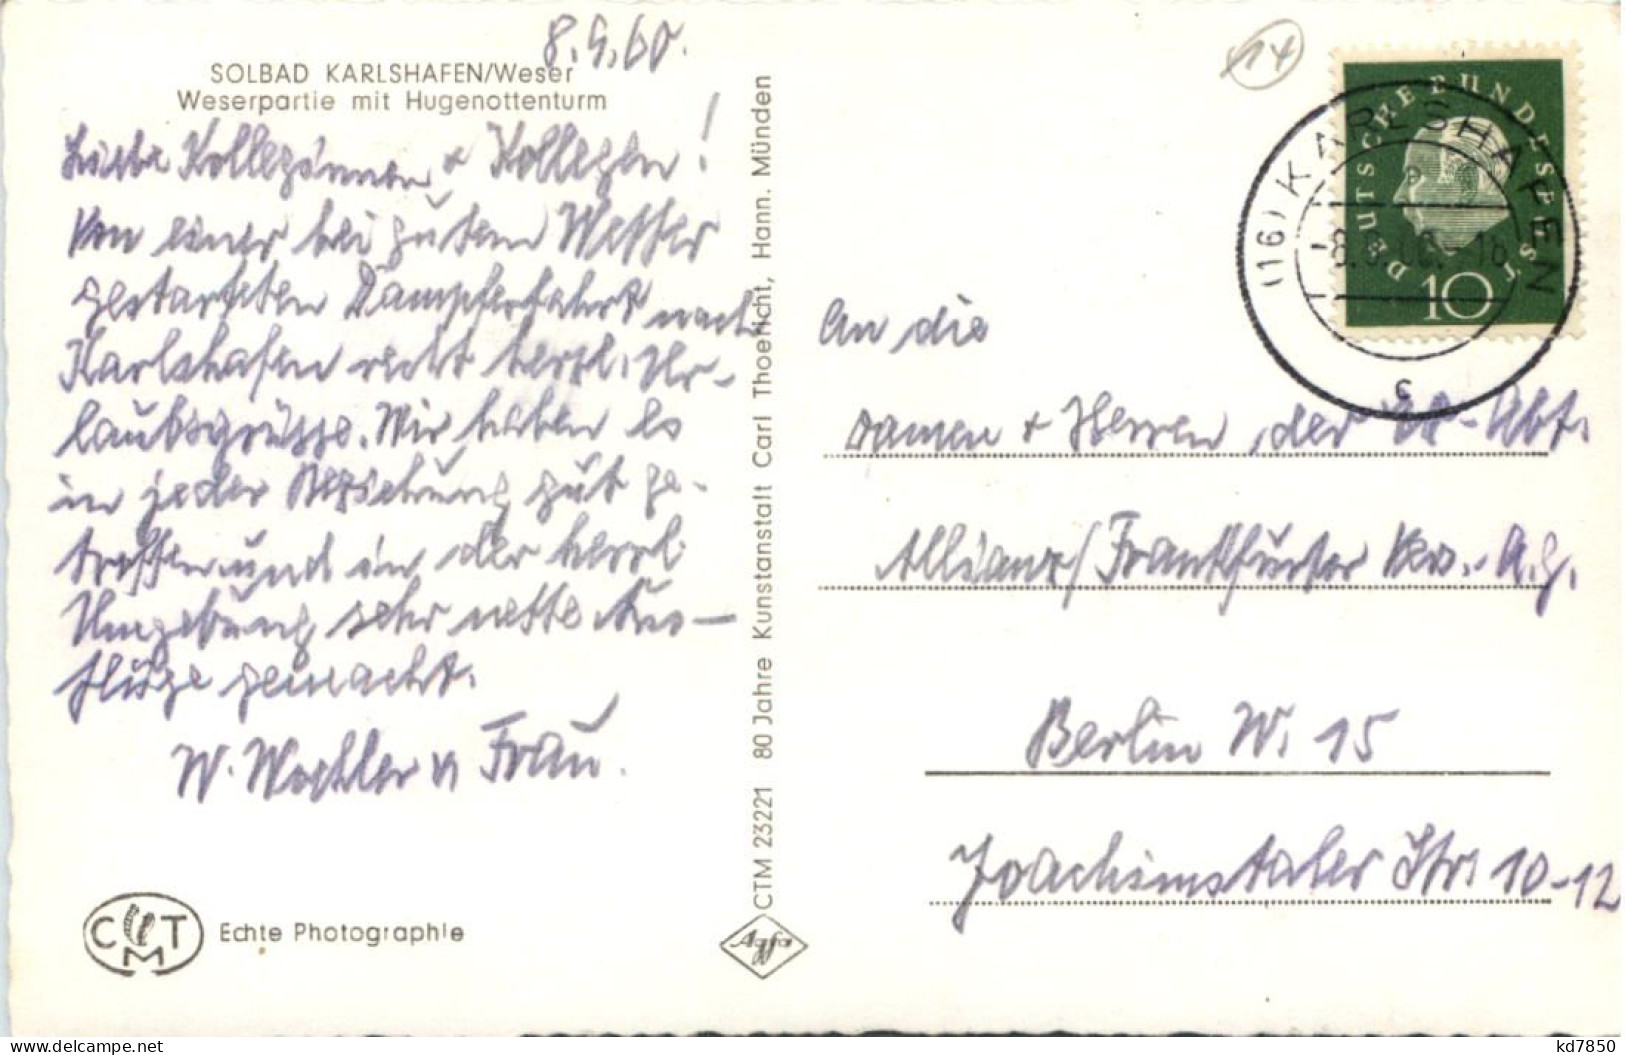 8.9.60.
SOLBAD KARLSHAFEN/Weser
Weserpartie mit Hugenottenturm
Liebe Kolleginnen + Kollegen!
Von einer bei gutem Wetter
gestarteten Dampferfahrt nach
Karlshafen recht herzl. Ur-
laubsgrüsse. Wir haben es
in jeder Beziehung gut ge-
troffen und in der herrl.
Umgebung sehr nette Aus-
flüge gemacht.
W. Wachtler u Frau.
CMT
Echte Photographie
CTM 23221 80 Jahre Kunstanstalt Carl Thoericht, Hann. Münden
Agfa
14
DEUTSCHE BUNDESPOST
10
(16) KARLSHAFEN
-8.9.60.-18
c
An die
Damen + Herren der -Abt.
Allianz/Frankfurter Vers. A.G.
Berlin W. 15
Joachimstaler Str. 10-12
delcampe.net
kd7850